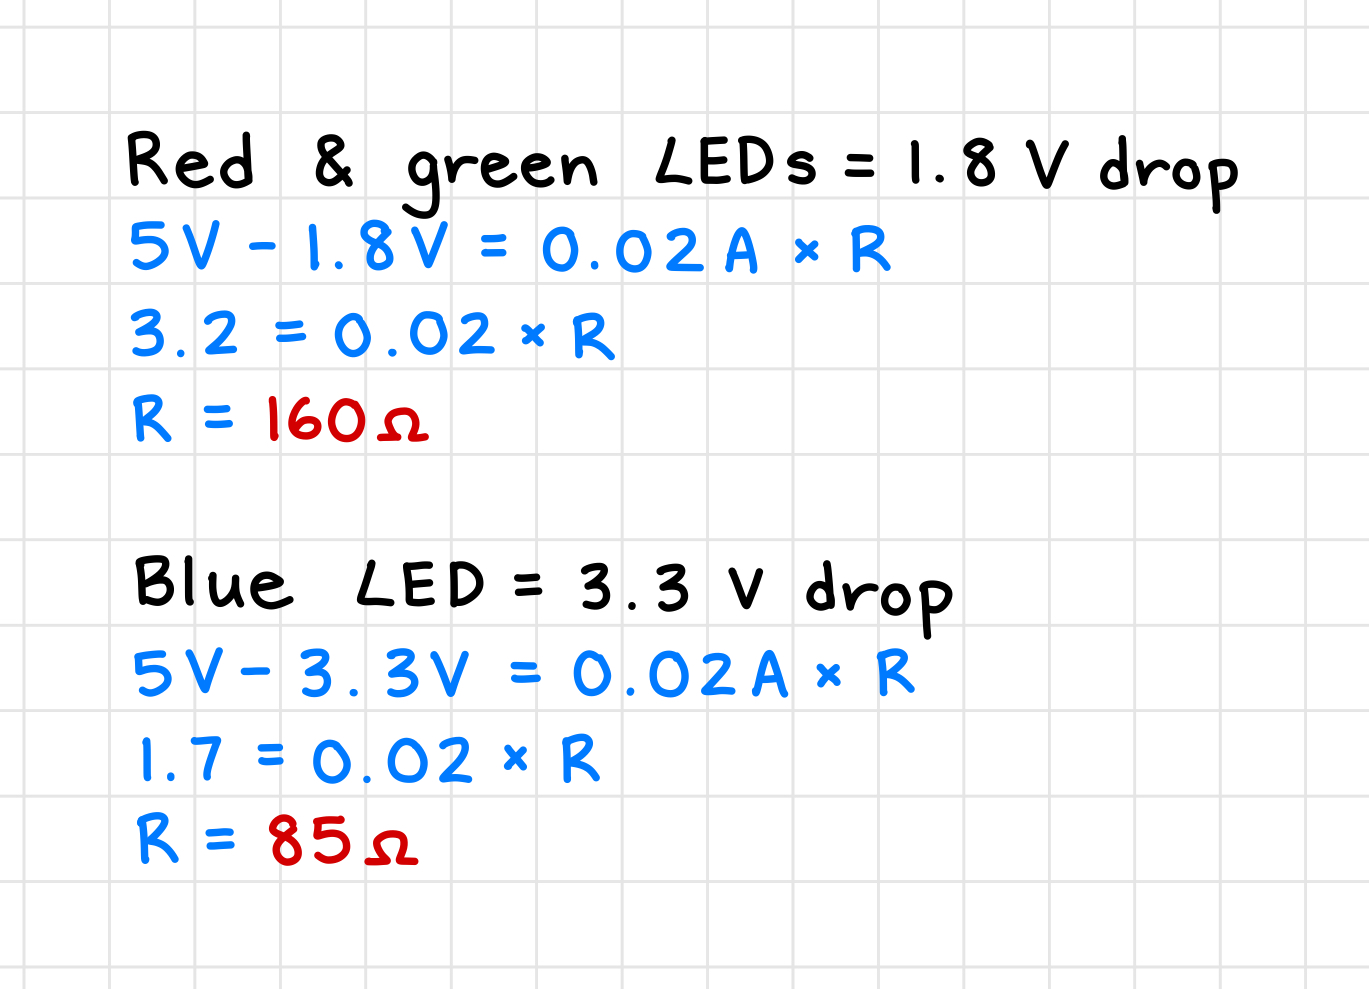 Red & green LEDs = 1.8 V drop
5V - 1.8V = 0.02A × R
3.2 = 0.02 × R
R = 160Ω
Blue LED = 3.3 V drop
5V - 3.3V = 0.02A × R
1.7 = 0.02 × R
R = 85Ω